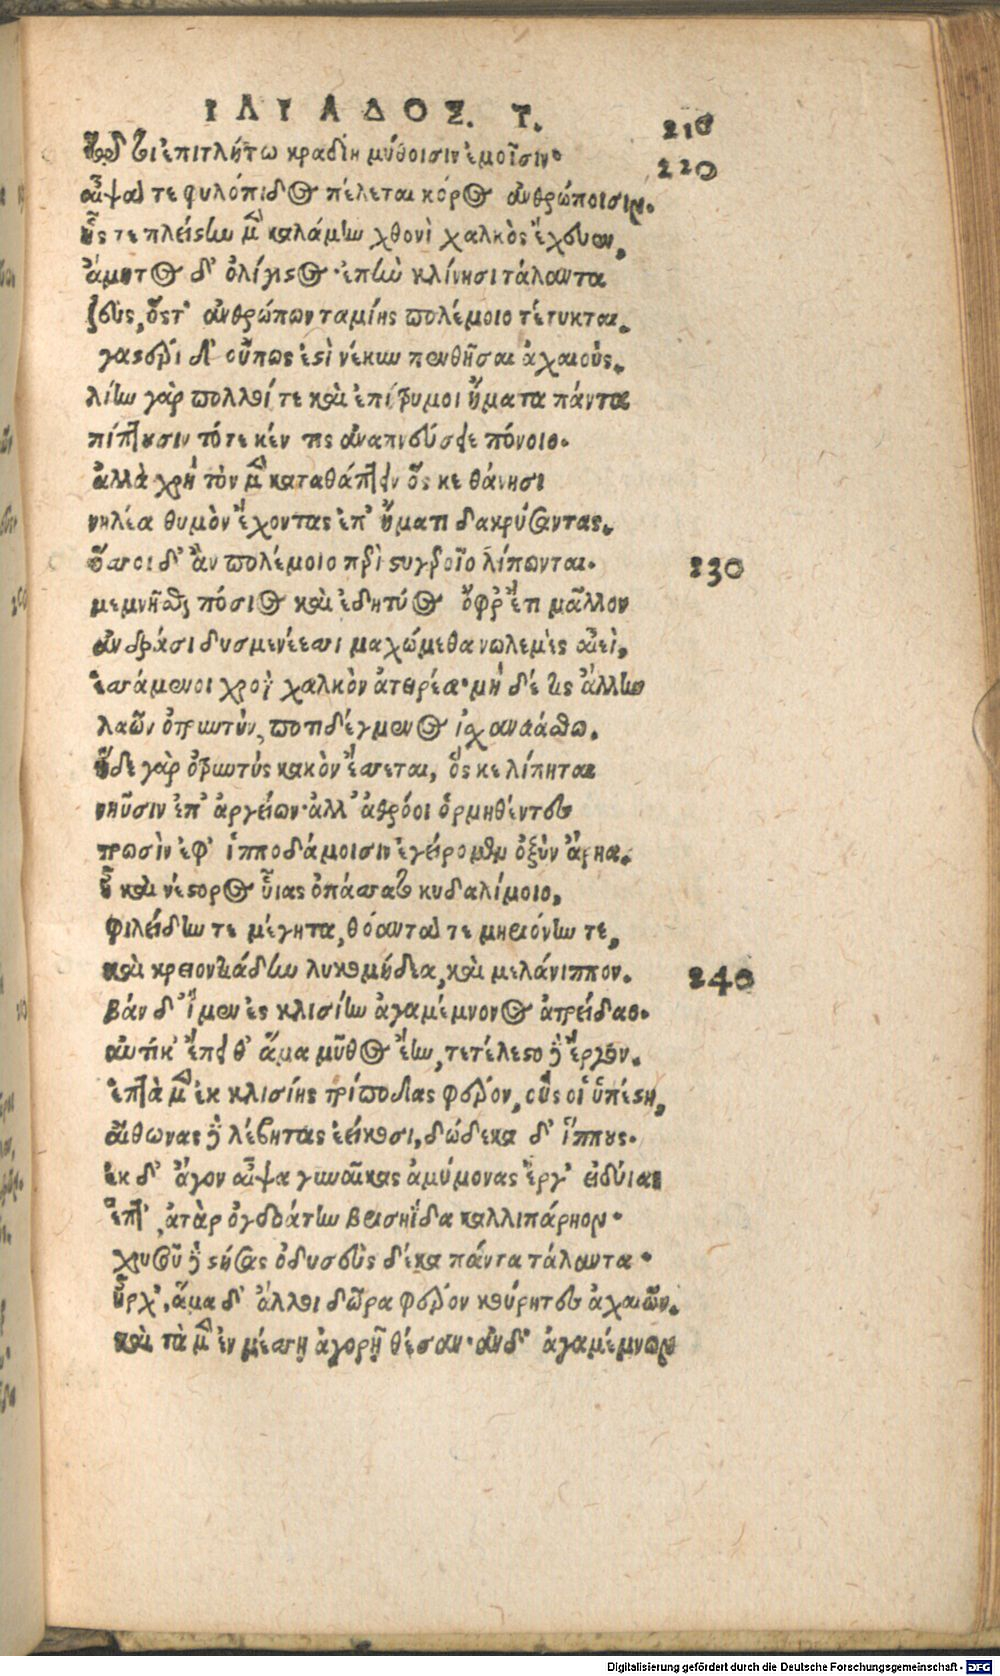 ΙΛΙΑΔΟΣ. Τ.
210
τῷ τοι ἐπιτλήτω κραδίη μύθοισιν ἐμοῖσιν·
220
αἶψά τε φυλόπιδος πέλεται κόρος ἀνθρώποισιν.
ἧς τε πλείστην μὲν καλάμην χθονὶ χαλκὸς ἔχευεν,
ἄμητος δ' ὀλίγιστος· ἐπὴν κλίνησι τάλαντα
ζεὺς, ὅστ' ἀνθρώπων ταμίης πολέμοιο τέτυκται.
γαστέρι δ' οὔπως ἐστὶ νέκυν πενθῆσαι ἀχαιούς.
λίην γὰρ πολλοί τε καὶ ἐπήτριμοι ἤματα πάντα
πίπτουσιν τότε κέν τις ἀναπνεύσειε πόνοιο.
ἀλλὰ χρὴ τὸν μὲν καταθάπτειν ὅς κε θάνησι
νηλέα θυμὸν ἔχοντας ἐπ' ἤματι δακρύσαντας.
ὅσσοι δ' ἂν πολέμοιο περὶ στυγεροῖο λίπωνται.
230
μεμνῆσθαι πόσιος καὶ ἐδητύος ὄφρ' ἔτι μᾶλλον
ἀνδράσι δυσμενέεσσι μαχώμεθα νωλεμὲς αἰεὶ,
ἑσσάμενοι χροῒ χαλκὸν ἀτειρέα· μὴ δέ τις ἄλλην
λαῶν ὀτρυντὺν, ποτιδέγμενος ἰσχαναάσθω.
ἥδε γὰρ ὀτρυντὺς κακὸν ἔσσεται, ὅς κε λίπηται
νηῦσιν ἐπ' ἀργείων· ἀλλ' ἀθρόοι ὁρμηθέντες
τρωσὶν ἐφ' ἱπποδάμοισιν ἐγείρομεν ὀξὺν ἄρηα.
ἦ καὶ νέστορος υἷας ὀπάσσατο κυδαλίμοιο,
φυλείδην τε μέγητα, θόαντά τε μηριόνην τε,
καὶ κρειοντιάδην λυκομήδεα, καὶ μελάνιππον.
240
βάν δ' ἴμεν ἐς κλισίην ἀγαμέμνονος ἀτρείδαο.
αὐτίκ' ἔπειθ' ἅμα μῦθος ἔην, τετέλεστο δὲ ἔργον.
ἑπτὰ μὲν ἐκ κλισίης τρίποδας φέρον, οὕς οἱ ὑπέστη,
αἴθωνας δὲ λέβητας ἐείκοσι, δώδεκα δ' ἵππους.
ἐκ δ' ἄγον αἶψα γυναῖκας ἀμύμονας ἔργ' εἰδυίας
ἕπτ', ἀτὰρ ὀγδοάτην βρισηΐδα καλλιπάρηον.
χρυσοῦ δὲ στήσας ὀδυσεὺς δέκα πάντα τάλαντα·
ἦρχ', ἅμα δ' ἄλλοι δῶρα φέρον κούρητες ἀχαιῶν.
καὶ τὰ μὲν ἐν μέσσῃ ἀγορῇ θέσαν· ἂν δ' ἀγαμέμνων
Digitalisierung gefördert durch die Deutsche Forschungsgemeinschaft - DFG